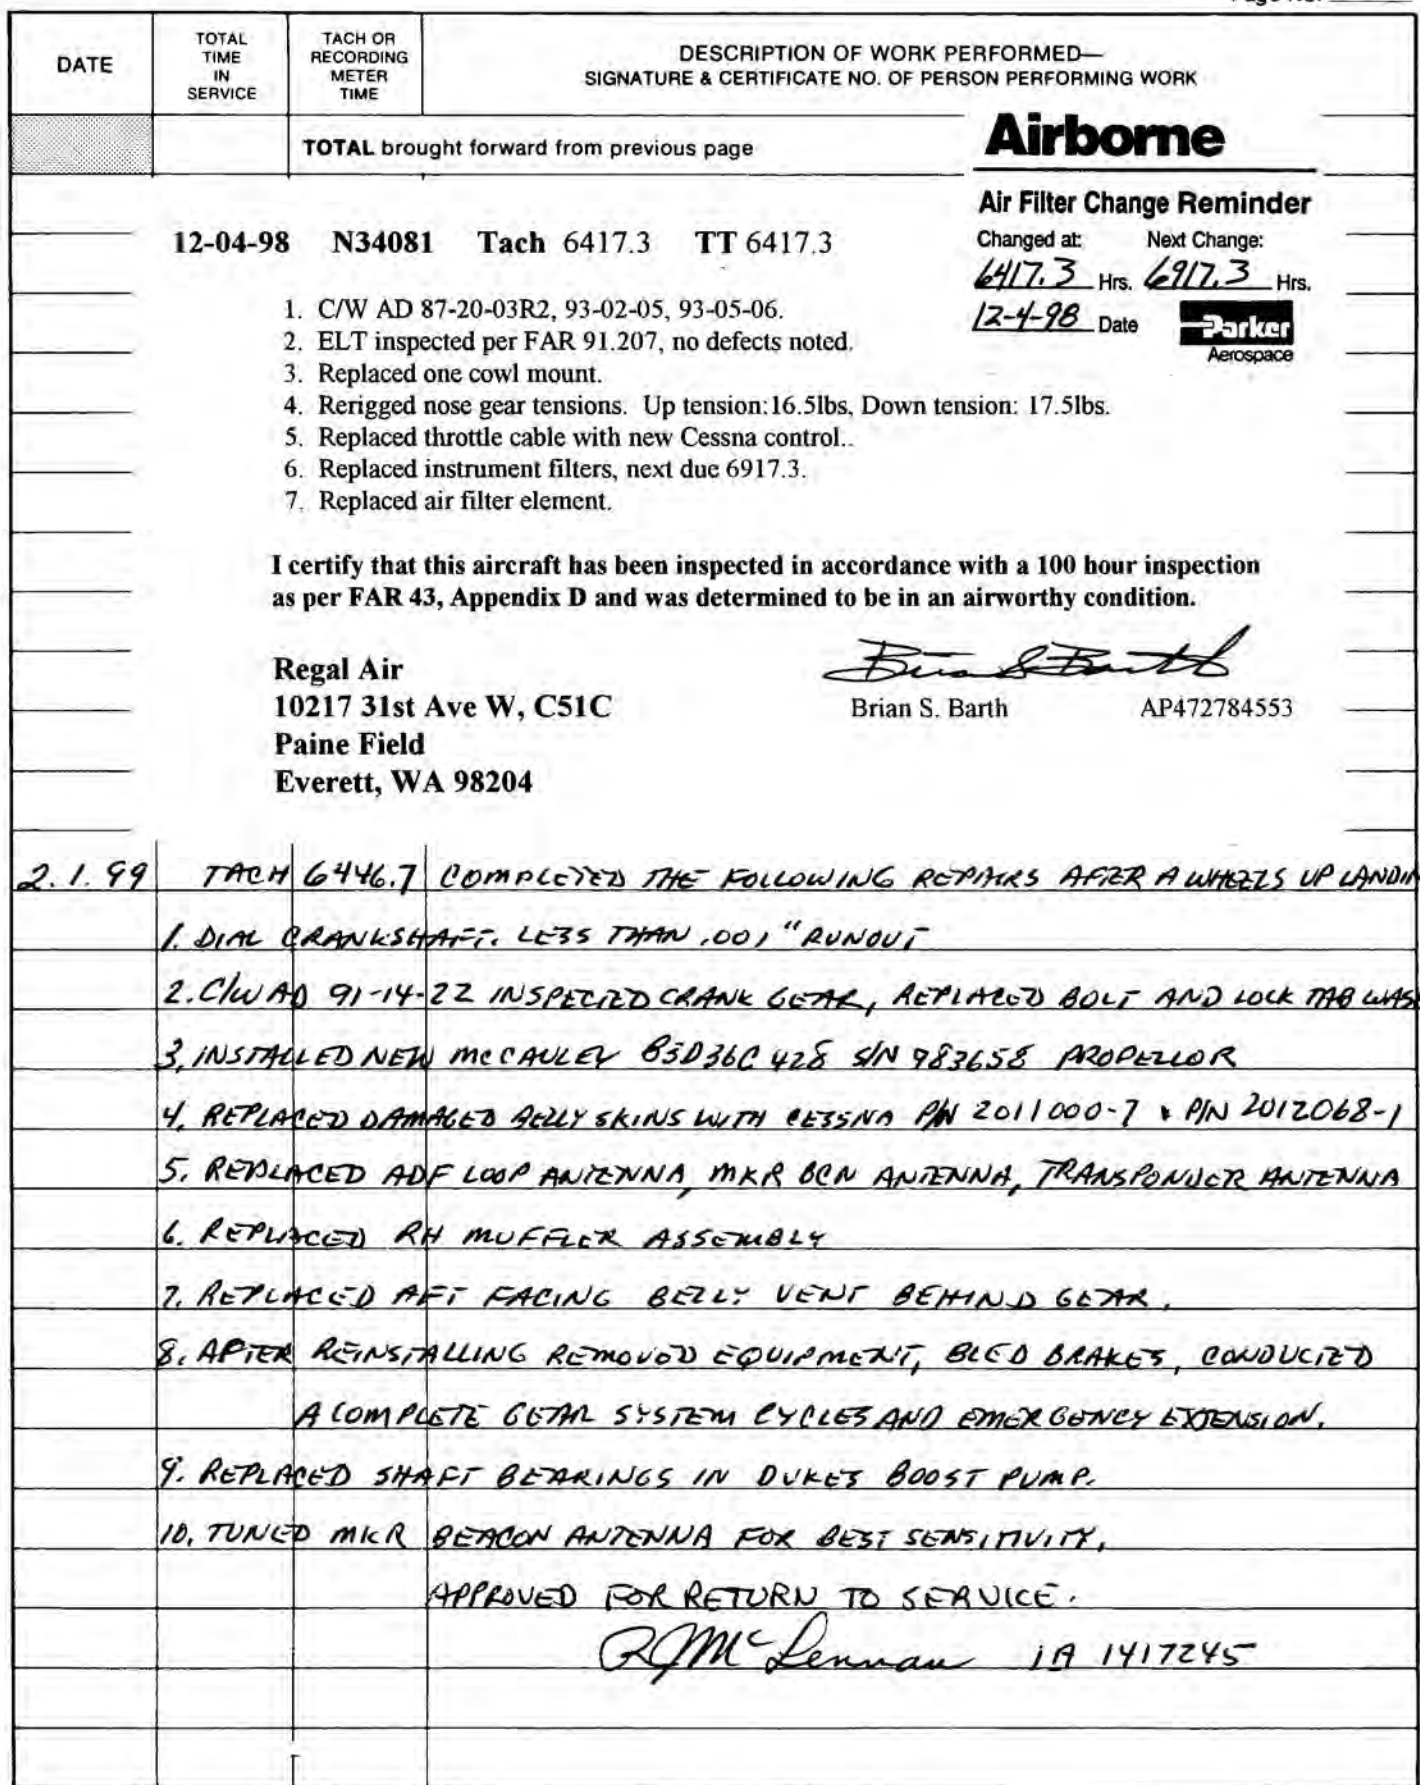 Page No.
DATE
TOTAL
TIME
IN
SERVICE
TACH OR
RECORDING
METER
TIME
DESCRIPTION OF WORK PERFORMED—
SIGNATURE & CERTIFICATE NO. OF PERSON PERFORMING WORK
TOTAL brought forward from previous page
Airborne
Air Filter Change Reminder
Changed at: Next Change:
6417.3 Hrs. 6917.3 Hrs.
12-4-98 Date
Parker
Aerospace
12-04-98 N34081 Tach 6417.3 TT 6417.3
1. C/W AD 87-20-03R2, 93-02-05, 93-05-06.
2. ELT inspected per FAR 91.207, no defects noted.
3. Replaced one cowl mount.
4. Rerigged nose gear tensions. Up tension:16.5lbs, Down tension: 17.5lbs.
5. Replaced throttle cable with new Cessna control..
6. Replaced instrument filters, next due 6917.3.
7. Replaced air filter element.
I certify that this aircraft has been inspected in accordance with a 100 hour inspection
as per FAR 43, Appendix D and was determined to be in an airworthy condition.
Regal Air
10217 31st Ave W, C51C
Paine Field
Everett, WA 98204
Brian S Barth
Brian S. Barth AP472784553
2.1.99 TACH 6446.7 COMPLETED THE FOLLOWING REPAIRS AFTER A WHEELS UP LANDIN
1. DIAL CRANKSHAFT. LESS THAN .001" RUNOUT
2. C/W AD 91-14-22 INSPECTED CRANK GEAR, REPLACED BOLT AND LOCK TAB WAS
3. INSTALLED NEW McCAULEY B3D36C428 S/N 983658 PROPELLOR
4. REPLACED DAMAGED BELLY SKINS WITH CESSNA P/N 2011000-7 & P/N 2012068-1
5. REPLACED ADF LOOP ANTENNA, MKR BCN ANTENNA, TRANSPONDER ANTENNA
6. REPLACED RH MUFFLER ASSEMBLY
7. REPLACED AFT FACING BELLY VENT BEHIND GEAR.
8. AFTER REINSTALLING REMOVED EQUIPMENT, BLED BRAKES, CONDUCTED
A COMPLETE GEAR SYSTEM CYCLES AND EMERGENCY EXTENSION.
9. REPLACED SHAFT BEARINGS IN DUKES BOOST PUMP.
10. TUNED MKR BEACON ANTENNA FOR BEST SENSITIVITY.
APPROVED FOR RETURN TO SERVICE.
RJ McLennan IA 1417245